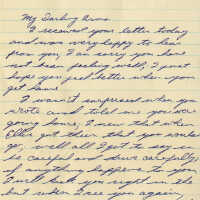 My Darling Anna
I received your letter today
and was very happy to hear
from you, I am sorry you have
not been feeling well, I just
hope you feel better when you
get home
I wasn't surprised when you
wrote and told me you were
going home, I knew that when
Ellie got there that you would
go, well all I got to say is
be careful and drive carefully
if anything happens to you
I will kick you right in the
but when I see you again,